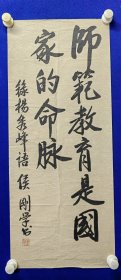 師範教育是國
家的命脉
錄楊秀峰語 侯剛學書